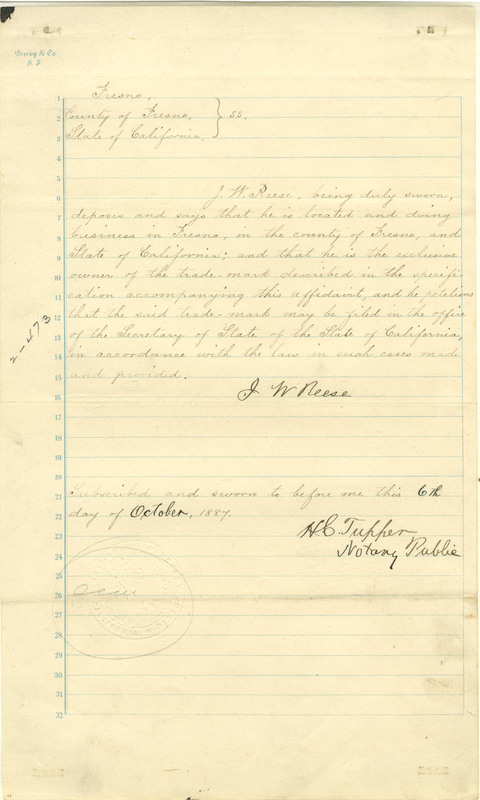 Dewey & Co.
S. F.
1 Fresno,
2 County of Fresno, } ss.
3 State of California,
4
5
6 J. W. Reese, being duly sworn,
7 deposes and says that he is located and doing
8 business in Fresno, in the county of Fresno, and
9 State of California; and that he is the exclusive
10 owner of the trade-mark described in the specifi-
11 cation accompanying this affidavit, and he petitions
12 that the said trade-mark may be filed in the office
13 of the Secretary of State of the State of California,
14 in accordance with the law in such cases made
15 and provided.
16 J W Reese
17
18
19
20
21 Subscribed and sworn to before me this 6th
22 day of October, 1887.
23 H C Tupper
24 Notary Public
25
26
27
28
29
30
31
32
2-473